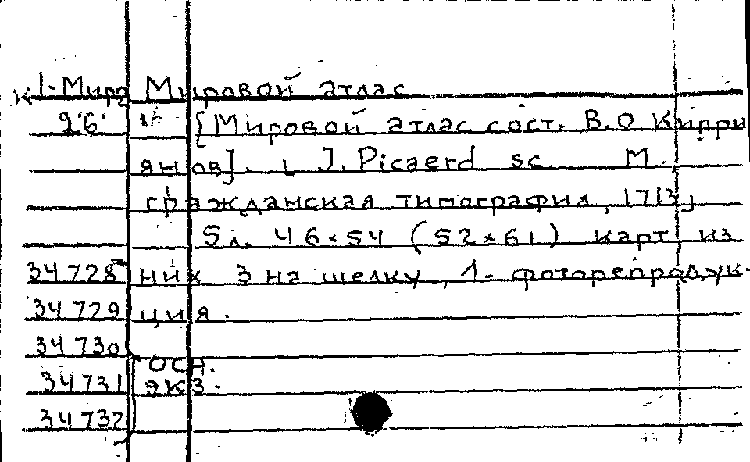 К1-Мир Мировой атлас
26 [Мировой атлас сост. В.О Кипри
янов]. J. Picaerd sc. М.
гражданская типография, 1713,
5 л. 46×54 (52×61) карт, из
34728 них 3 на шелку, 1- фоторепродук-
34729 ция.
34730
осн.
34731 экз.
34732